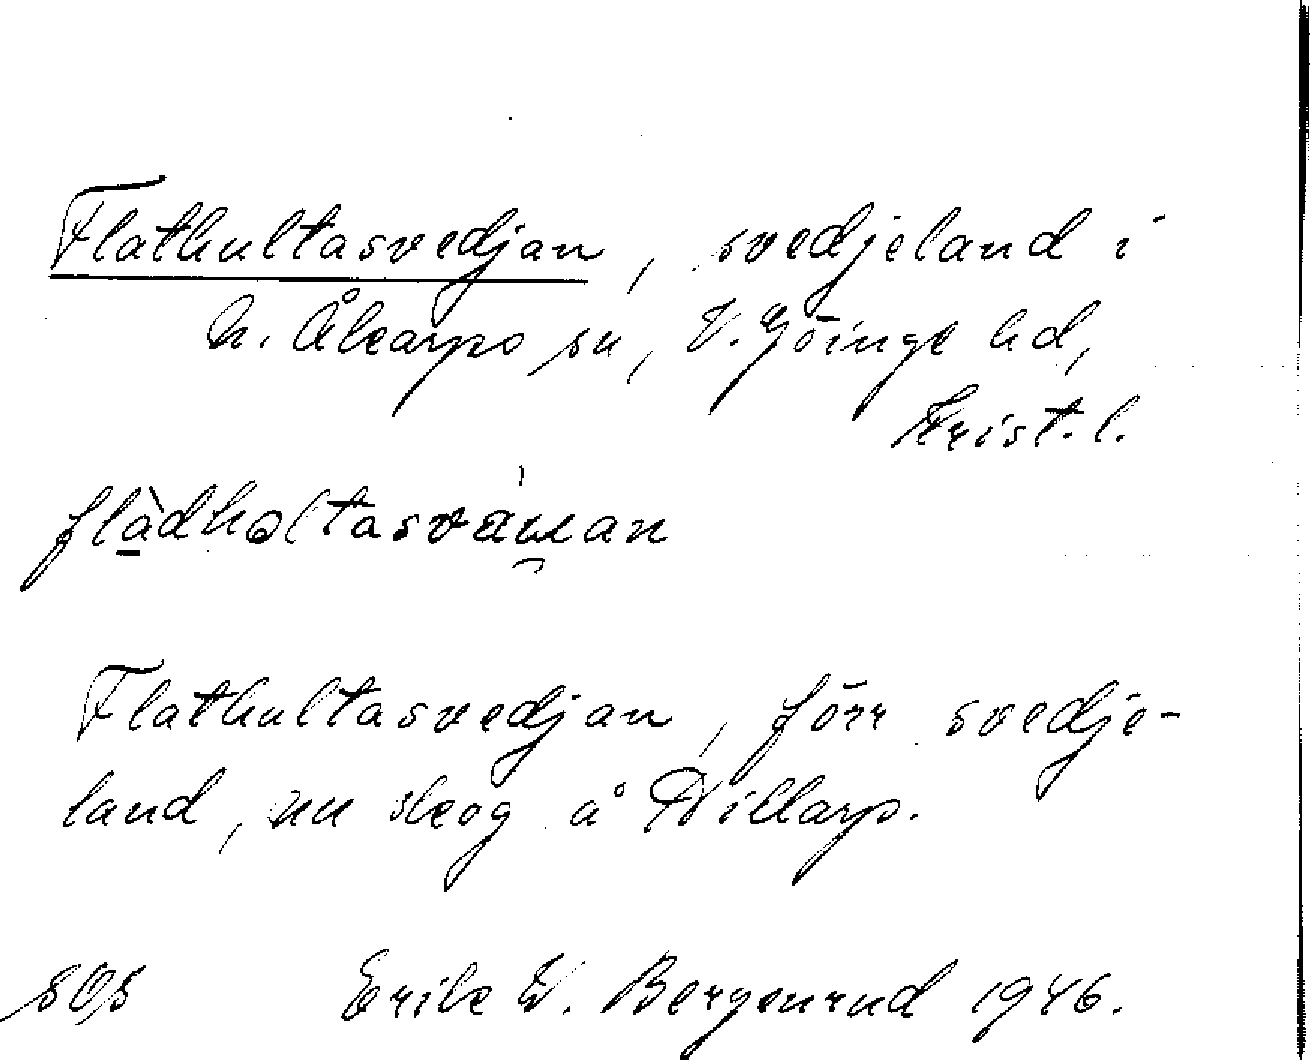 Flathultasvedjan, svedjeland i
N. Åkarps sn, V. Göinge hd,
Krist. l.
Flathultasvedjan, förr svedje-
land, nu skog å Willarp.
Erik W. Bergenrud 1946.